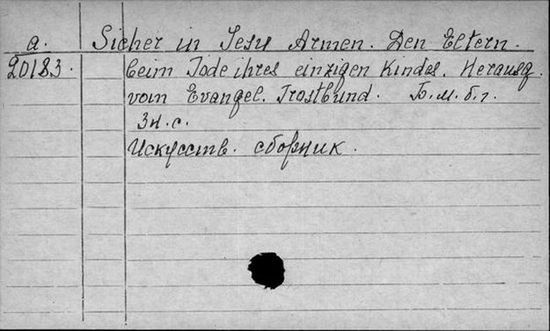 a. Sicher in Jesu Armen. Den Eltern.
20183. beim Tode ihres einzigen Kindes. Herausg.
vom Evangel. Trostbund. Б.м.б.г.
3н.с.
Искусств. сборник.